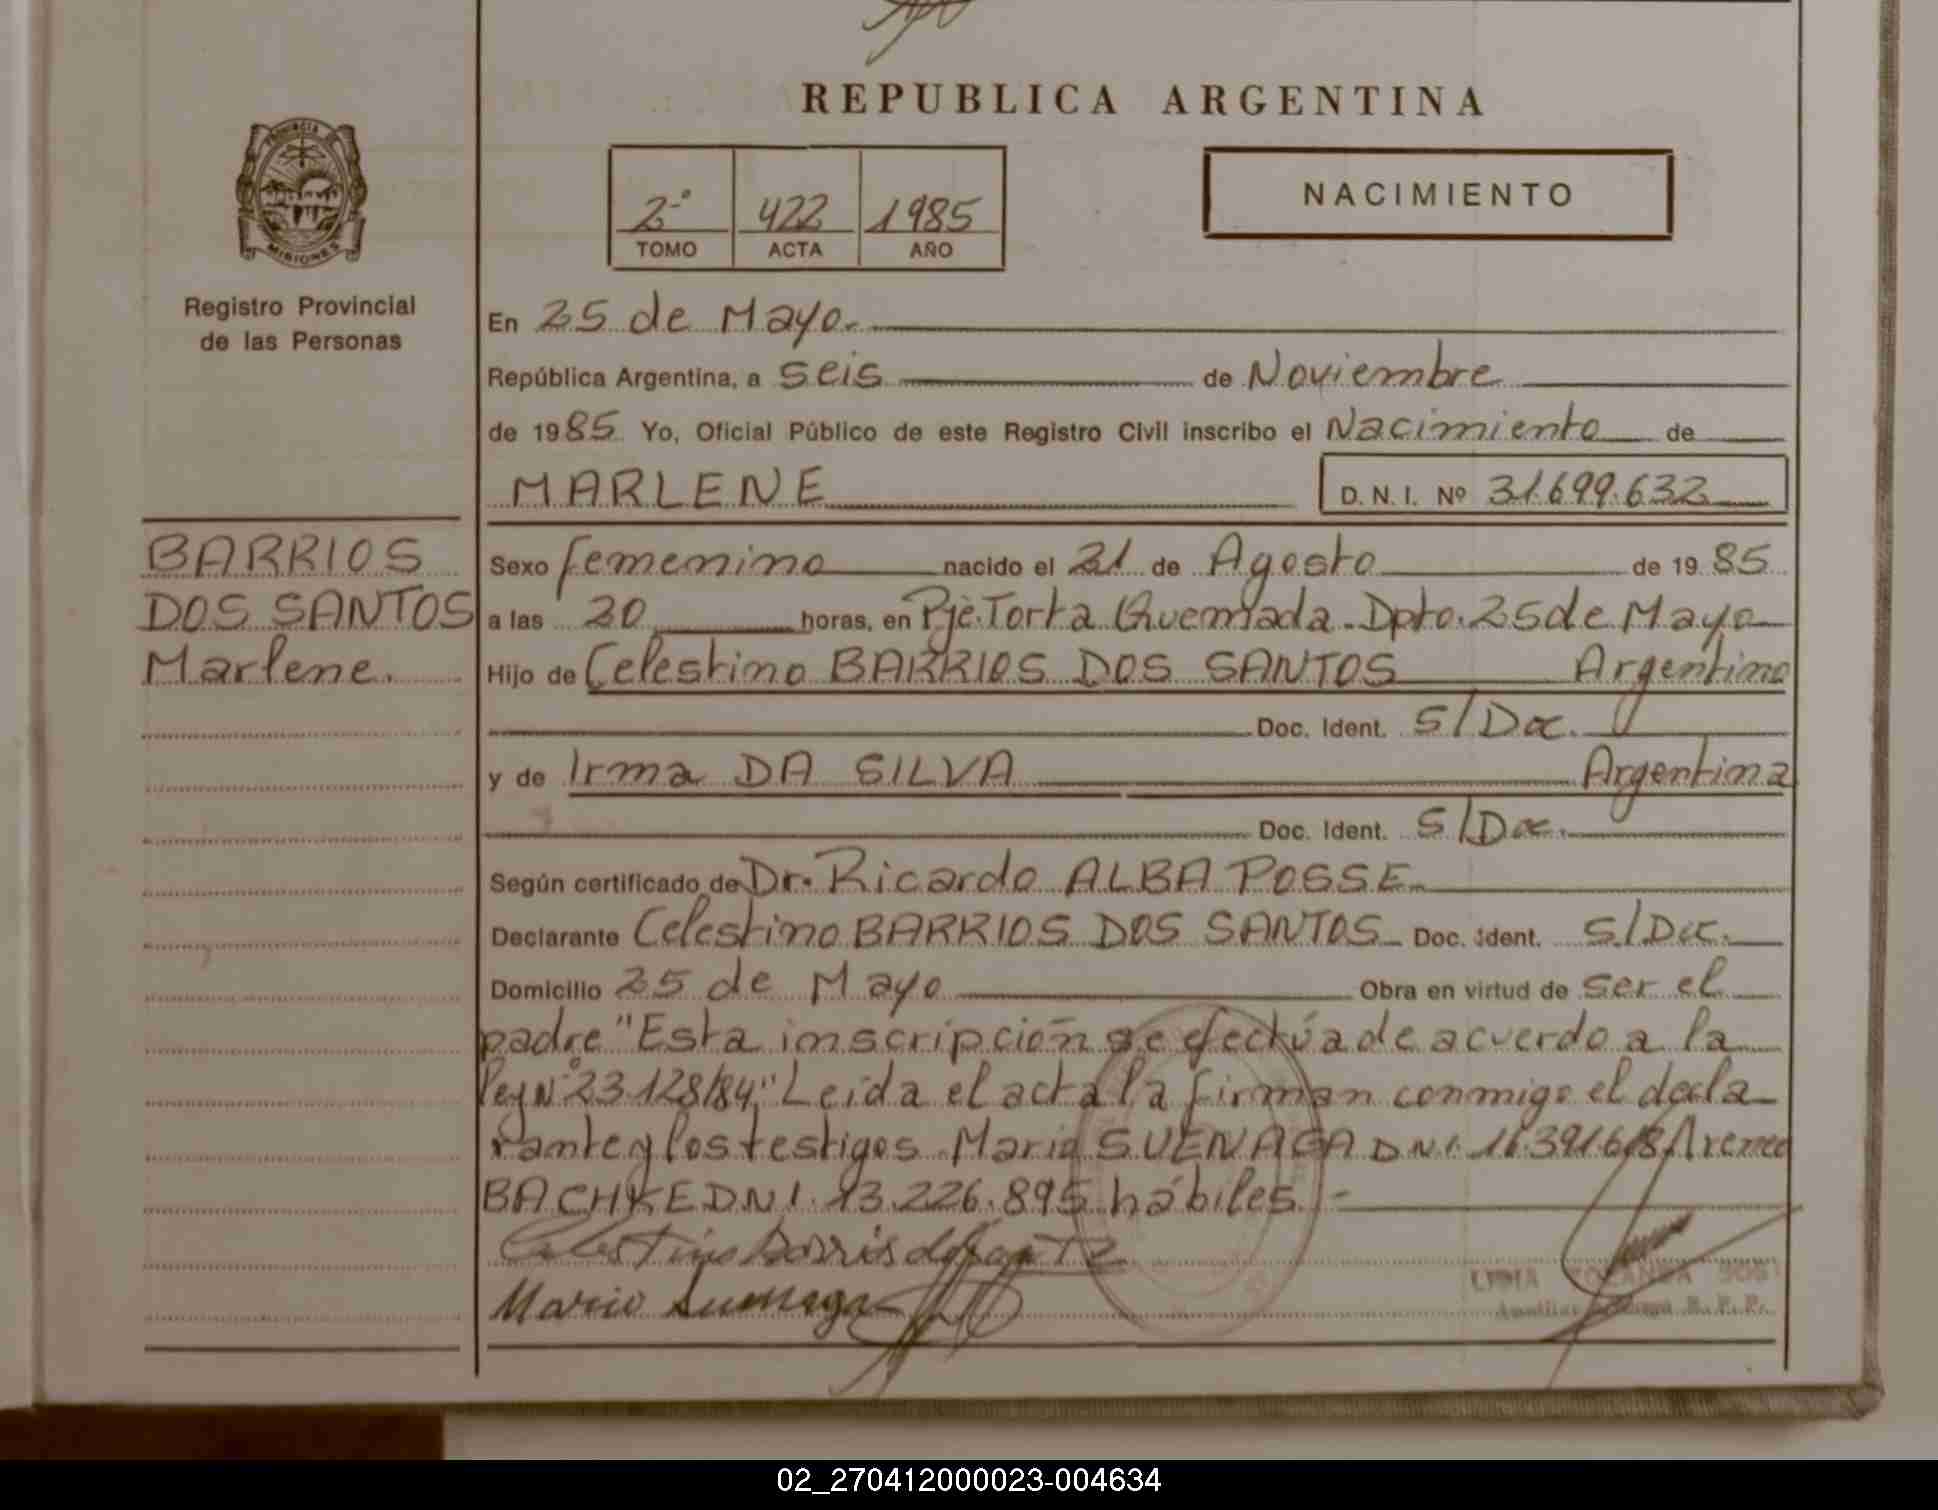 REPUBLICA ARGENTINA
PROVINCIA DE
MISIONES
Registro Provincial
de las Personas
2º 422 1985
TOMO ACTA AÑO
NACIMIENTO
En 25 de Mayo.
República Argentina, a seis de Noviembre
de 1985 Yo, Oficial Público de este Registro Civil inscribo el Nacimiento de
MARLENE D. N. I. Nº 31.699.632
BARRIOS
DOS SANTOS
Marlene.
Sexo femenino nacido el 21 de Agosto de 1985
a las 20 horas, en Pje. Torta Quemada - Dpto. 25 de Mayo
Hijo de Celestino BARRIOS DOS SANTOS Argentino
Doc. Ident. S/Doc.
y de Irma DA SILVA Argentina
Doc. Ident. S/Doc.
Según certificado de Dr. Ricardo ALBA POSSE
Declarante Celestino BARRIOS DOS SANTOS Doc. Ident. S/Doc.
Domicilio 25 de Mayo Obra en virtud de ser el
padre "Esta inscripción se efectúa de acuerdo a la
ley Nº 23.128/84" Leida el acta la firman conmigo el decla
rante y los testigos Mario SUENAGA DNI. 11.391.618
BACHKE DNI. 13.226.895 hábiles.-
Mario Suenaga
02_270412000023-004634